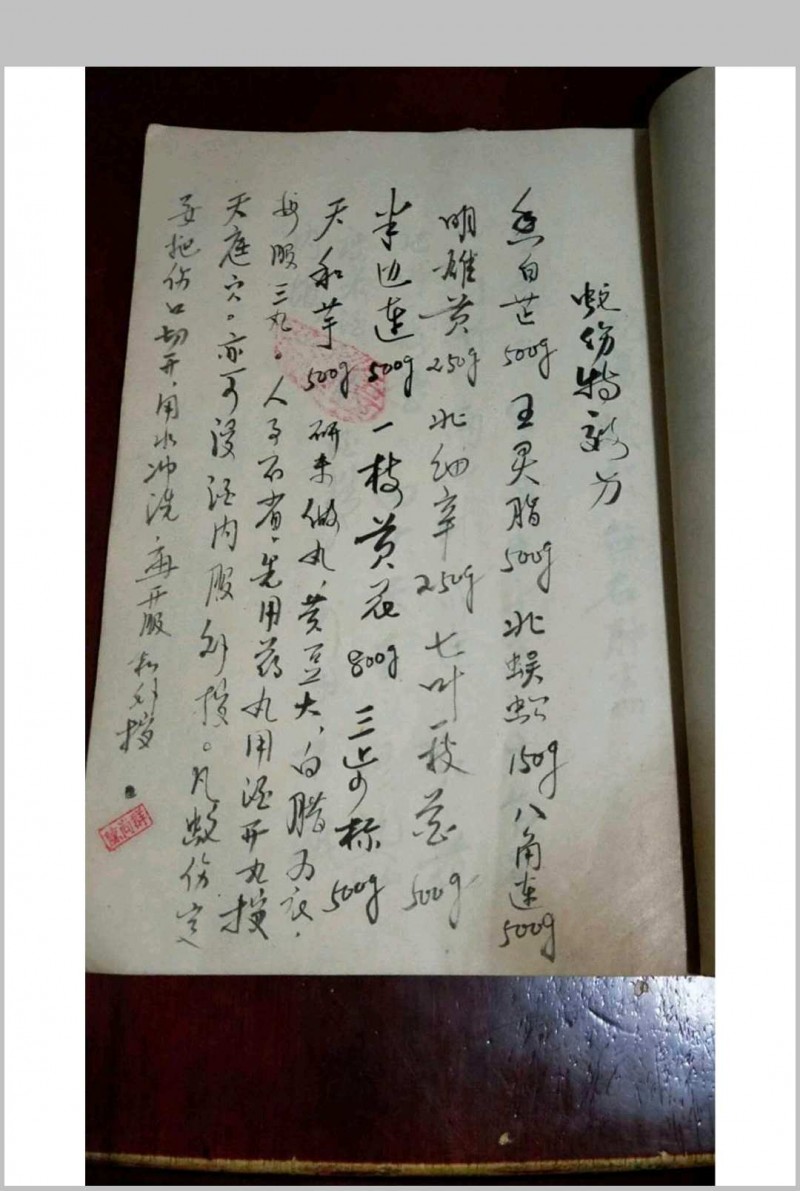 蛇伤特效方
香白芷500g 王灵脂500g 北蜈蚣150g 八角连500g
明雄黄250g 北细辛250g 七叶一枝花500g
半边连500g 一枝黄花800g 三步标500g
天和芋500g 研末做丸,黄豆大,白腊为衣.
每服三丸。人事不省,先用药丸用酒开丸搽
天庭穴。亦可浸酒内服外搽。凡蛇伤定
要把伤口切开,用水冲洗,再开服和外搽.